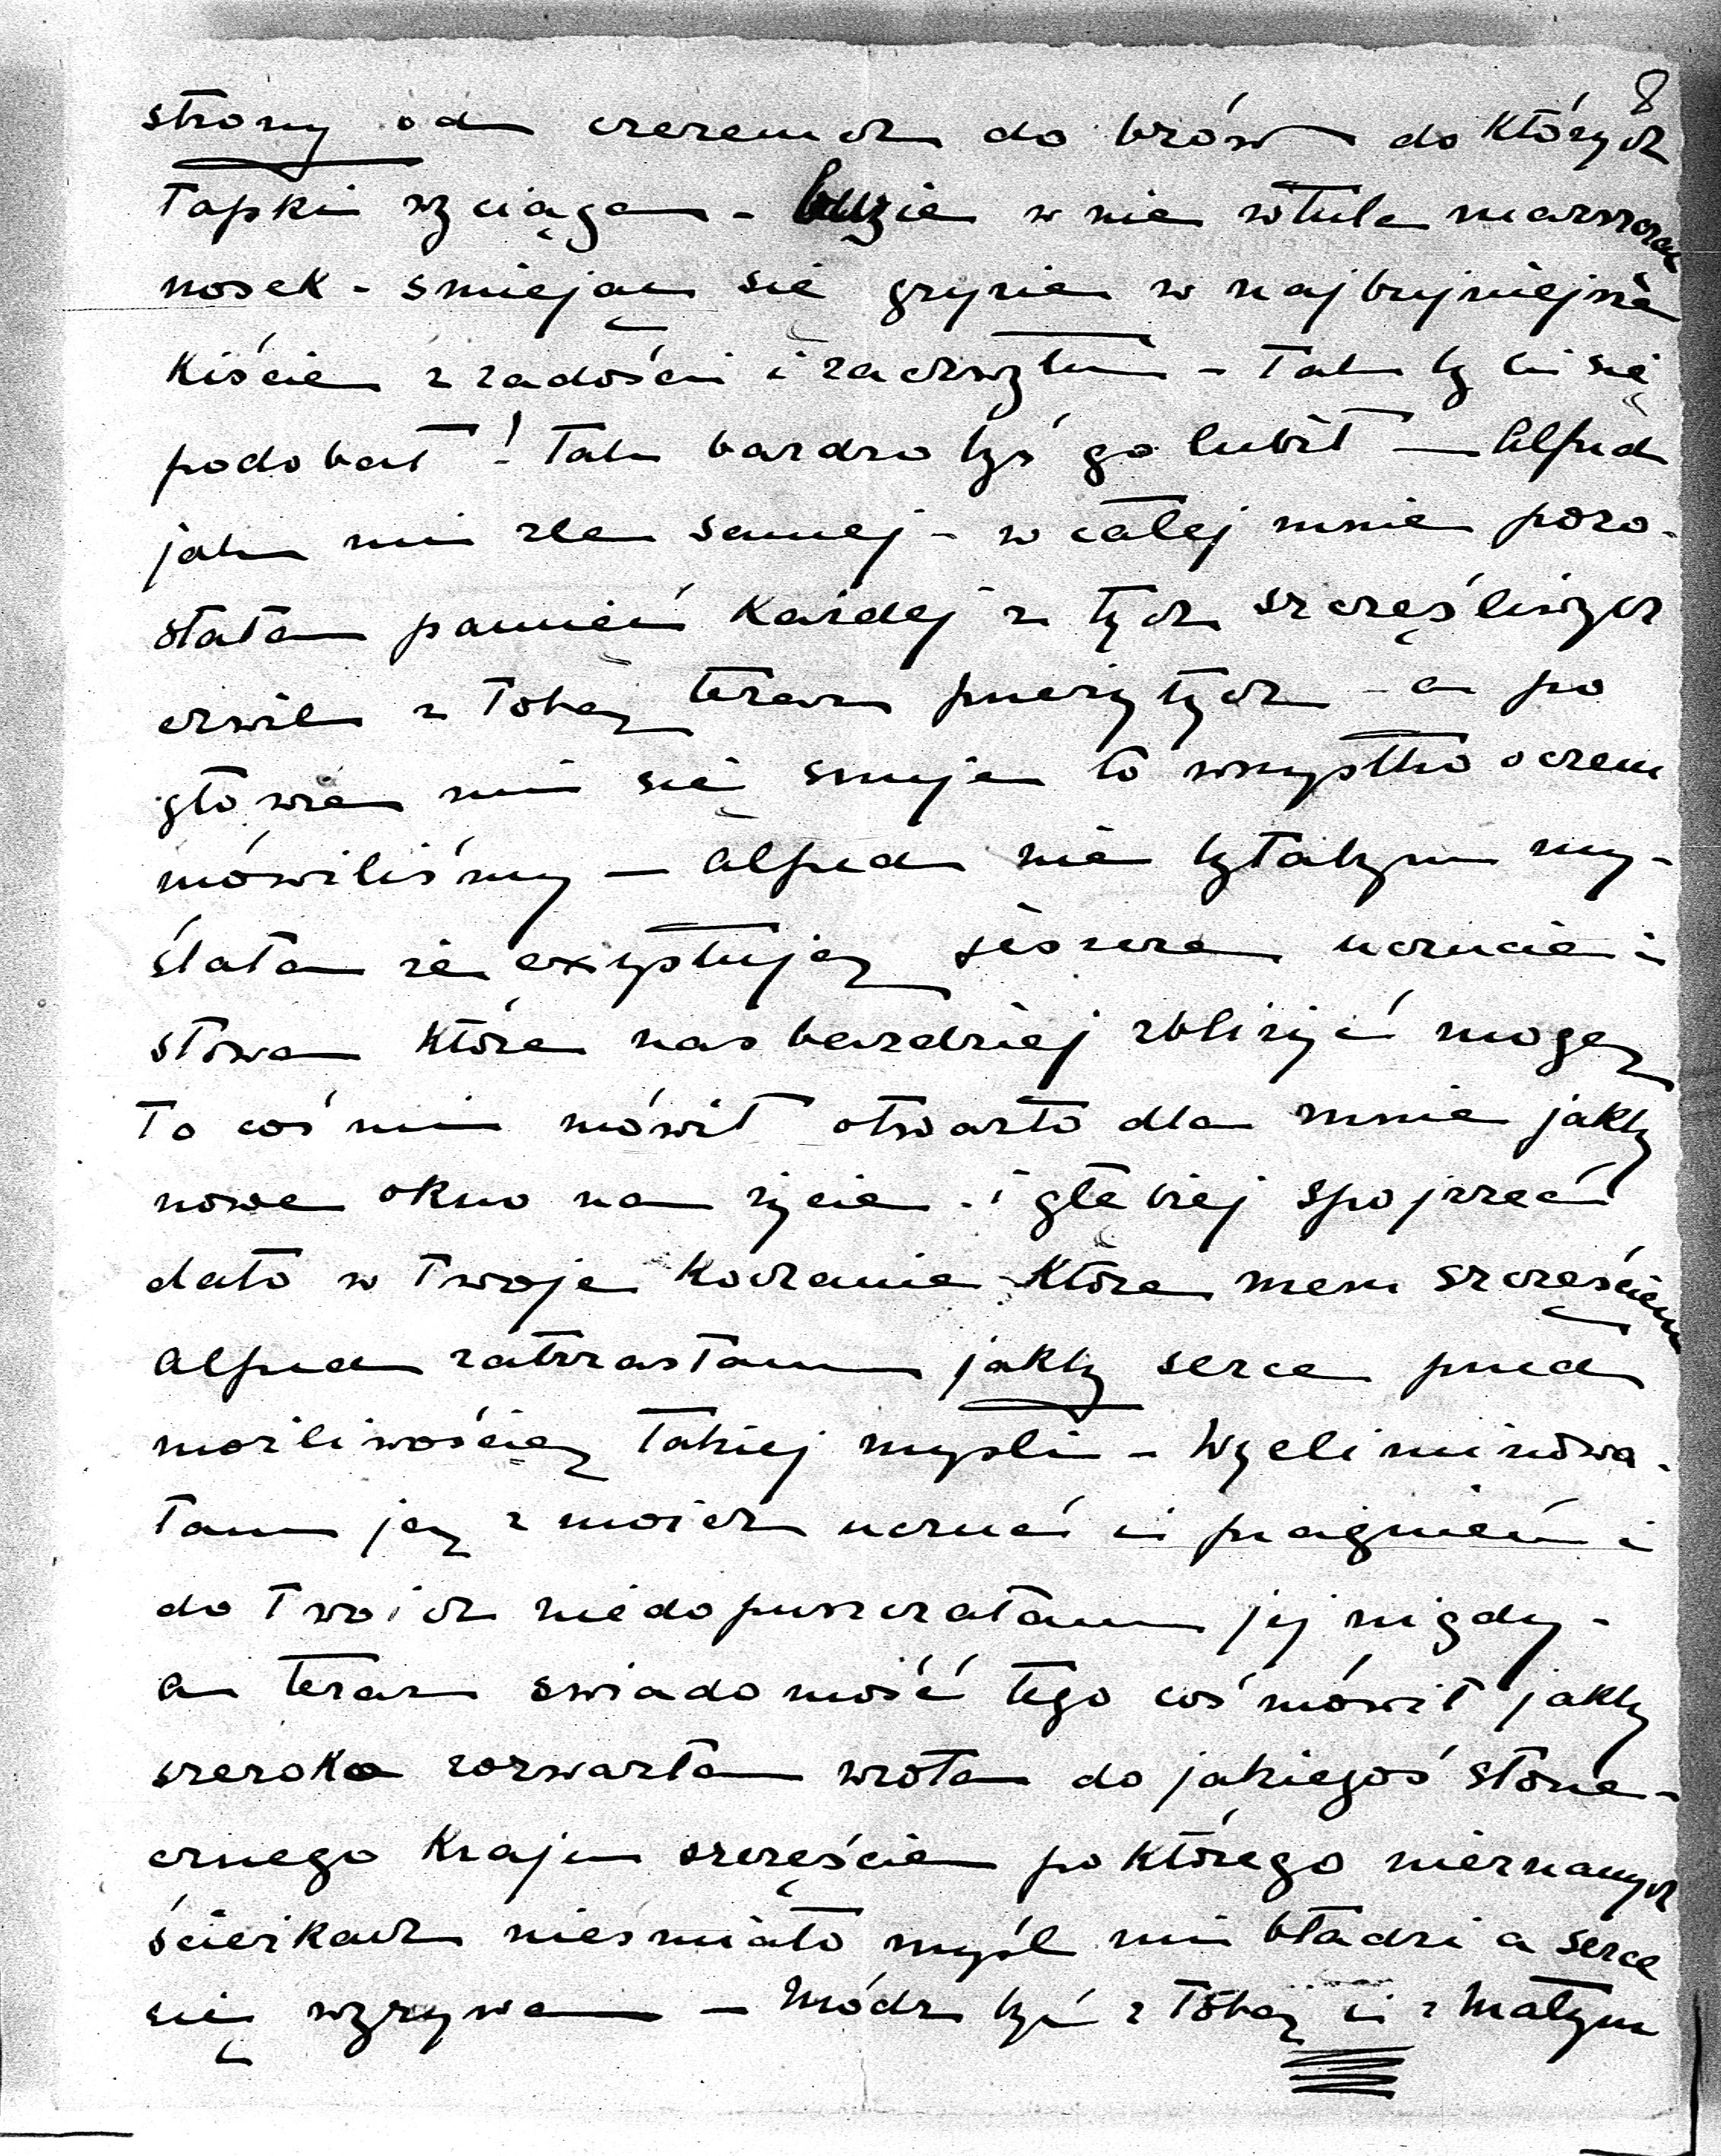 8
strony od czeremch do bzów do których
łapki wyciąga - buzię w nie wtula marszcząc
nosek - śmiejąc się gryzie w najbujniejsze
kiście z radości i zachwytu - Tak by ci się
podobał! Tak bardzo byś go lubił — Alfred
jak mi źle samej - w całej mnie pozo-
stała pamięć każdej z tych szczęśliwych
chwil z Tobą teraz przeżytych - a po
głowie mi się snuje to wszystko o czem
mówiliśmy — Alfred nie byłabym my-
ślała że exystują jeszcze uczucie i
słowa które nas bardziej zbliżyć mogą
To coś mi mówił otwarło dla mnie jakby
nowe okno na życie - i głębiej spojrzeć
dało w Twoje kochanie które mem szczęściem
Alfred zatrzasłam jakby serce przed
możliwością takiej myśli - Wyeliminowa-
łam ją z moich uczuć i pragnień i
do Twoich niedopuszczałam jej nigdy -
a teraz świadomość tego coś mówił jakby
szeroko rozwarła wrota do jakiegoś słone-
cznego kraju szczęścia po którego nieznanych
ścieżkach nieśmiało myśl mi błądzi a serce
się wyrywa — Módz być z Tobą i z Małym